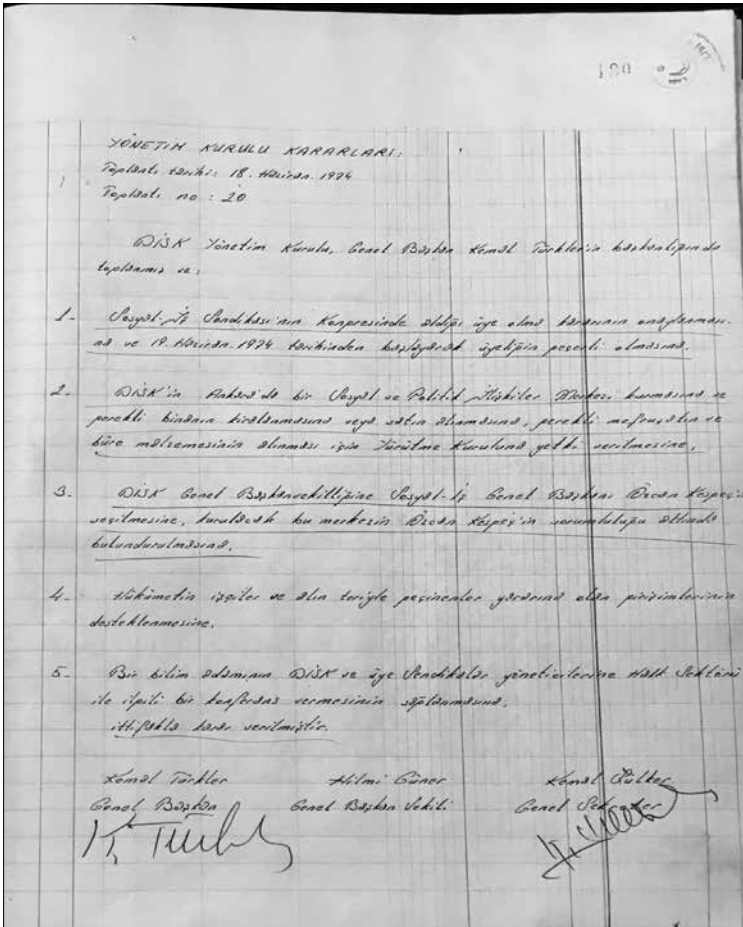 180
YÖNETİM KURULU KARARLARI:
Toplantı tarihi: 18. Haziran. 1974
Toplantı no : 20
DİSK Yönetim Kurulu, Genel Başkan Kemal Türkler'in başkanlığında
toplanmış ve:
1- Sosyal-İş Sendikası'nın Kongresinde aldığı üye olma kararının onaylanması-
na ve 19. Haziran. 1974 tarihinden başlayarak üyeliğin geçerli olmasına,
2- DİSK'in Ankara'da bir Sosyal ve Politik İlişkiler Merkezi kurmasına ve
gerekli binanın kiralanmasına veya satın alınmasına, gerekli mefruşatın ve
büro malzemesinin alınması için Yürütme Kuruluna yetki verilmesine,
3- DİSK Genel Başkanvekilliğine Sosyal-İş Genel Başkanı Özcan Kesgeç'in
seçilmesine, kurulacak bu merkezin Özcan Kesgeç'in sorumluluğu altında
bulundurulmasına,
4- Hükümetin işçiler ve alın teriyle geçinenler yararına olan girişimlerinin
desteklenmesine,
5- Bir bilim adamının DİSK ve üye Sendikalar yöneticilerine Halk Sektörü
ile ilgili bir konferans vermesinin sağlanmasına,
ittifakla karar verilmiştir.
Kemal Türkler Hilmi Güner Kemal Sülker
Genel Başkan Genel Başkan Vekili Genel Sekreter
K. Türkler